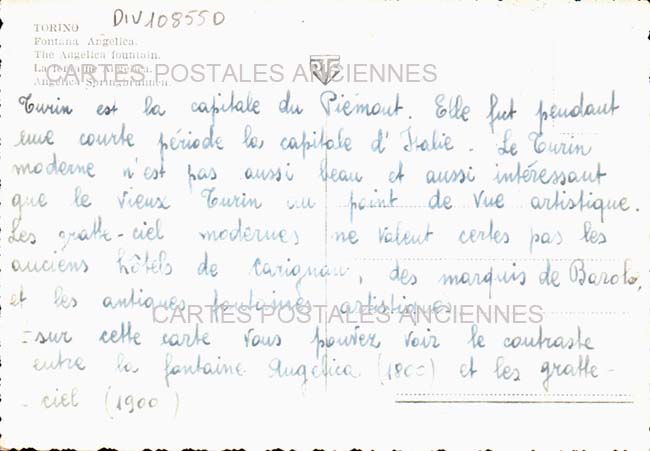 DIV10855D
TORINO
Fontana Angelica.
The Angelica fountain.
La fontaine Angelica.
Angelica Springbrunnen.
CARTES POSTALES ANCIENNES
Turin est la capitale du Piémont. Elle fut pendant
une courte période la capitale d'Italie. Le Turin
moderne n'est pas aussi beau et aussi intéressant
que le vieux Turin au point de vue artistique.
Les gratte-ciel modernes ne valent certes pas les
anciens hôtels de Carignan, des marquis de Barolo,
et les antiques fontaines artistiques
CARTES POSTALES ANCIENNES
-sur cette carte vous pouvez voir le contraste
entre la fontaine Angelica (1800) et les gratte-
-ciel (1900)